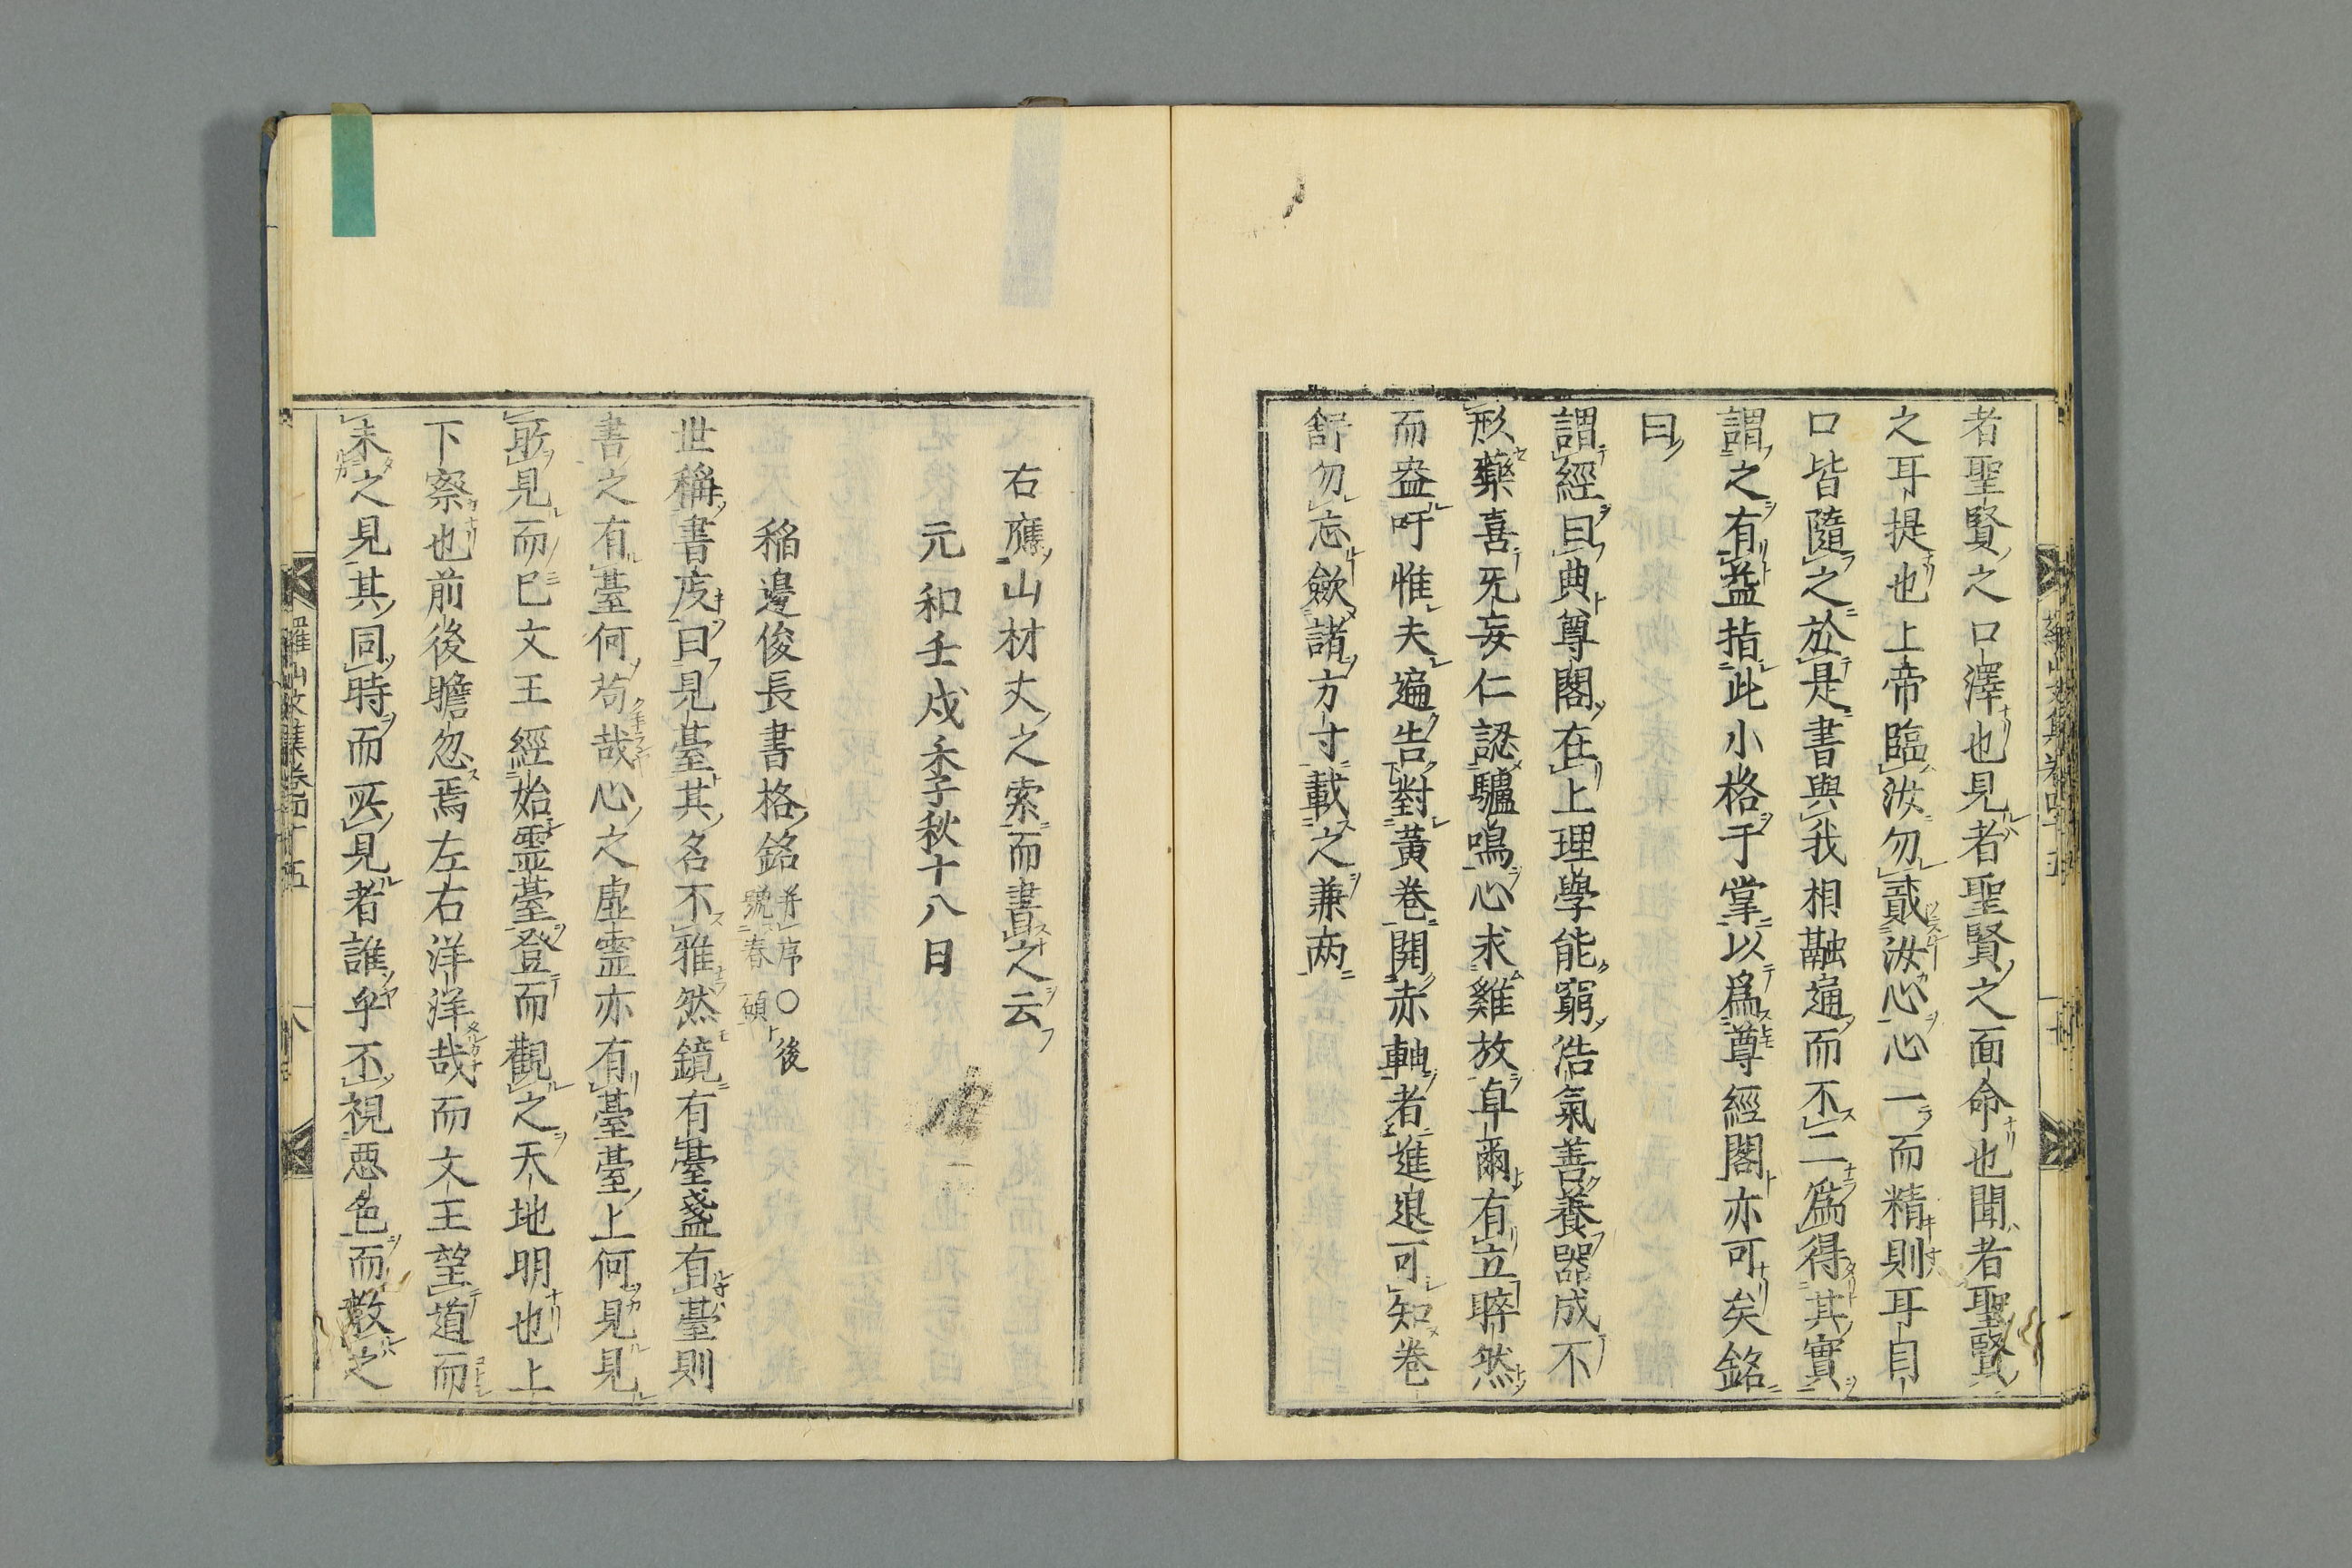 者聖賢之口澤也見者聖賢之面命也聞者聖賢
之耳提也上帝臨汝勿貳汝心心一而精則耳目
口皆隨之於是書與我相融通而不二爲得其實
謂之有益指此小格于掌以爲尊經閣亦可矣銘
曰
謂經曰典尊閣在上理學能窮浩氣善養器成不
形藥喜旡妄仁認驢鳴心求雞放卓爾有立睟然
而盎吁惟夫遍告對黃卷開赤軸者進退可知卷
舒勿忘歛諸方寸載之兼兩
右應山材丈之索而書之云
元和壬戌季秋十八日
稲邊俊長書格銘并序〇後
號春碩
世稱書庋曰見臺其名不雅然鏡有臺盞有臺則
書之有臺何苟哉心之虛靈亦有臺臺上何見見
敢見而已文王經始靈臺登而觀之天地明也上
下察也前後瞻忽焉左右洋洋哉而文王望道而
未之見其同時而匹見者誰乎不視惡色而敢之
羅山文集卷四十五
羅山文集卷四十五